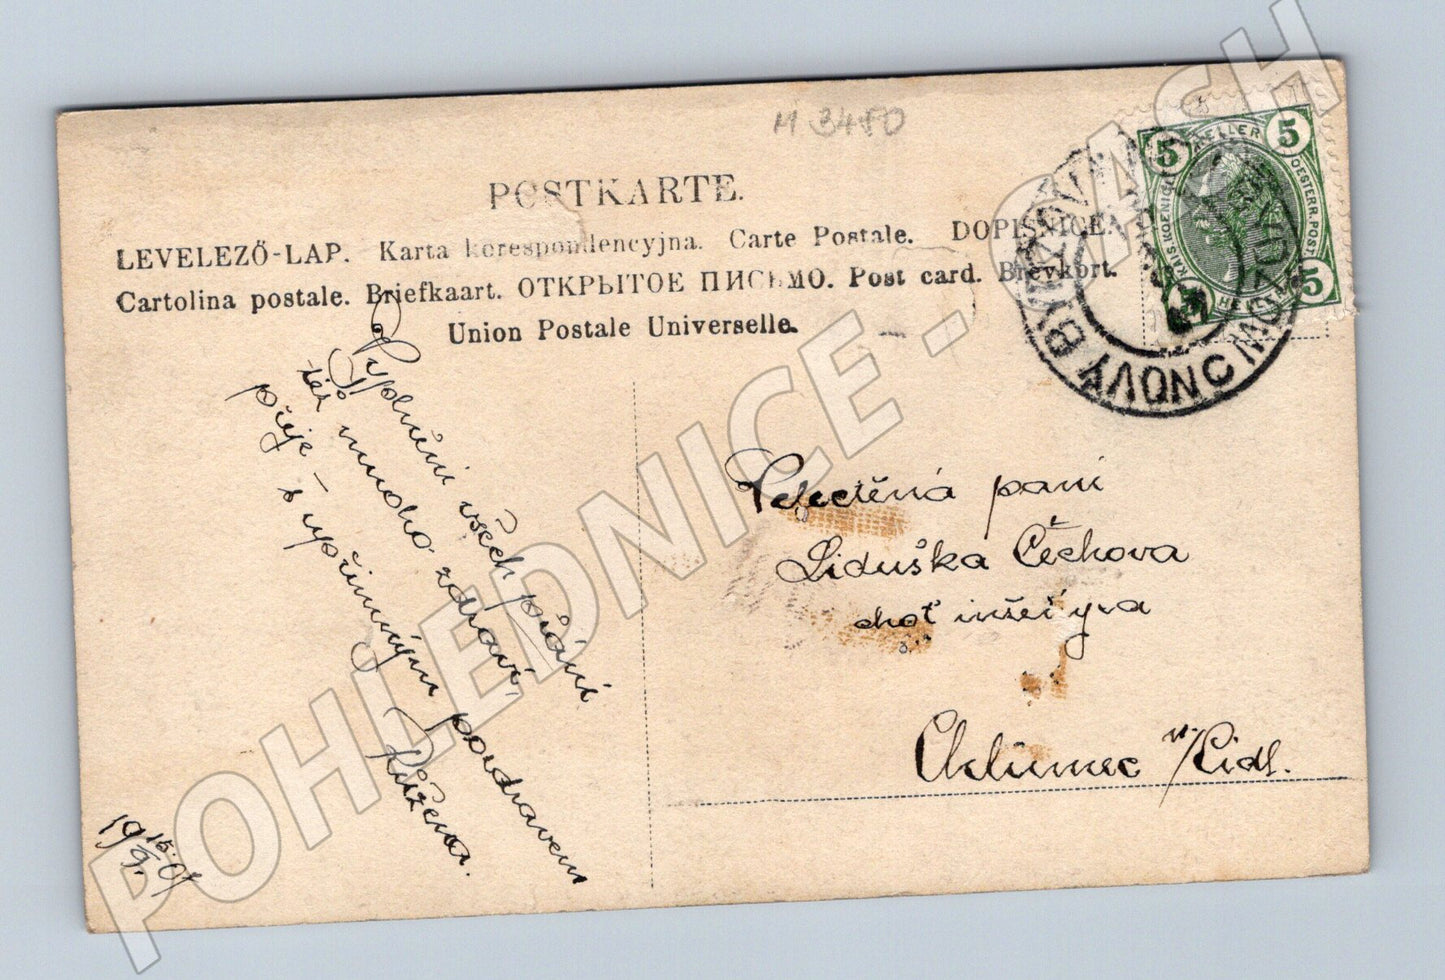 M 3450
POSTKARTE.
LEVELEZŐ-LAP. Karta korespondencyjna. Carte Postale. DOPISNICE.
Cartolina postale. Briefkaart. ОТКРЫТОЕ ПИСЬМО. Post card. Brevkort.
Union Postale Universelle.
5 HELLER 5
KAIS. KOENIGL. OESTERR. POST
5
NOVÝ BYDŽOV
Vyplnění všech přání
též mnoho zdraví,
přeje – s upřímným pozdravem
Růžena.
19 15/9. 07
Velectěná paní
Liduška Čechova
choť
Chlumec n/Cidl.
POHLEDNICE - CASH